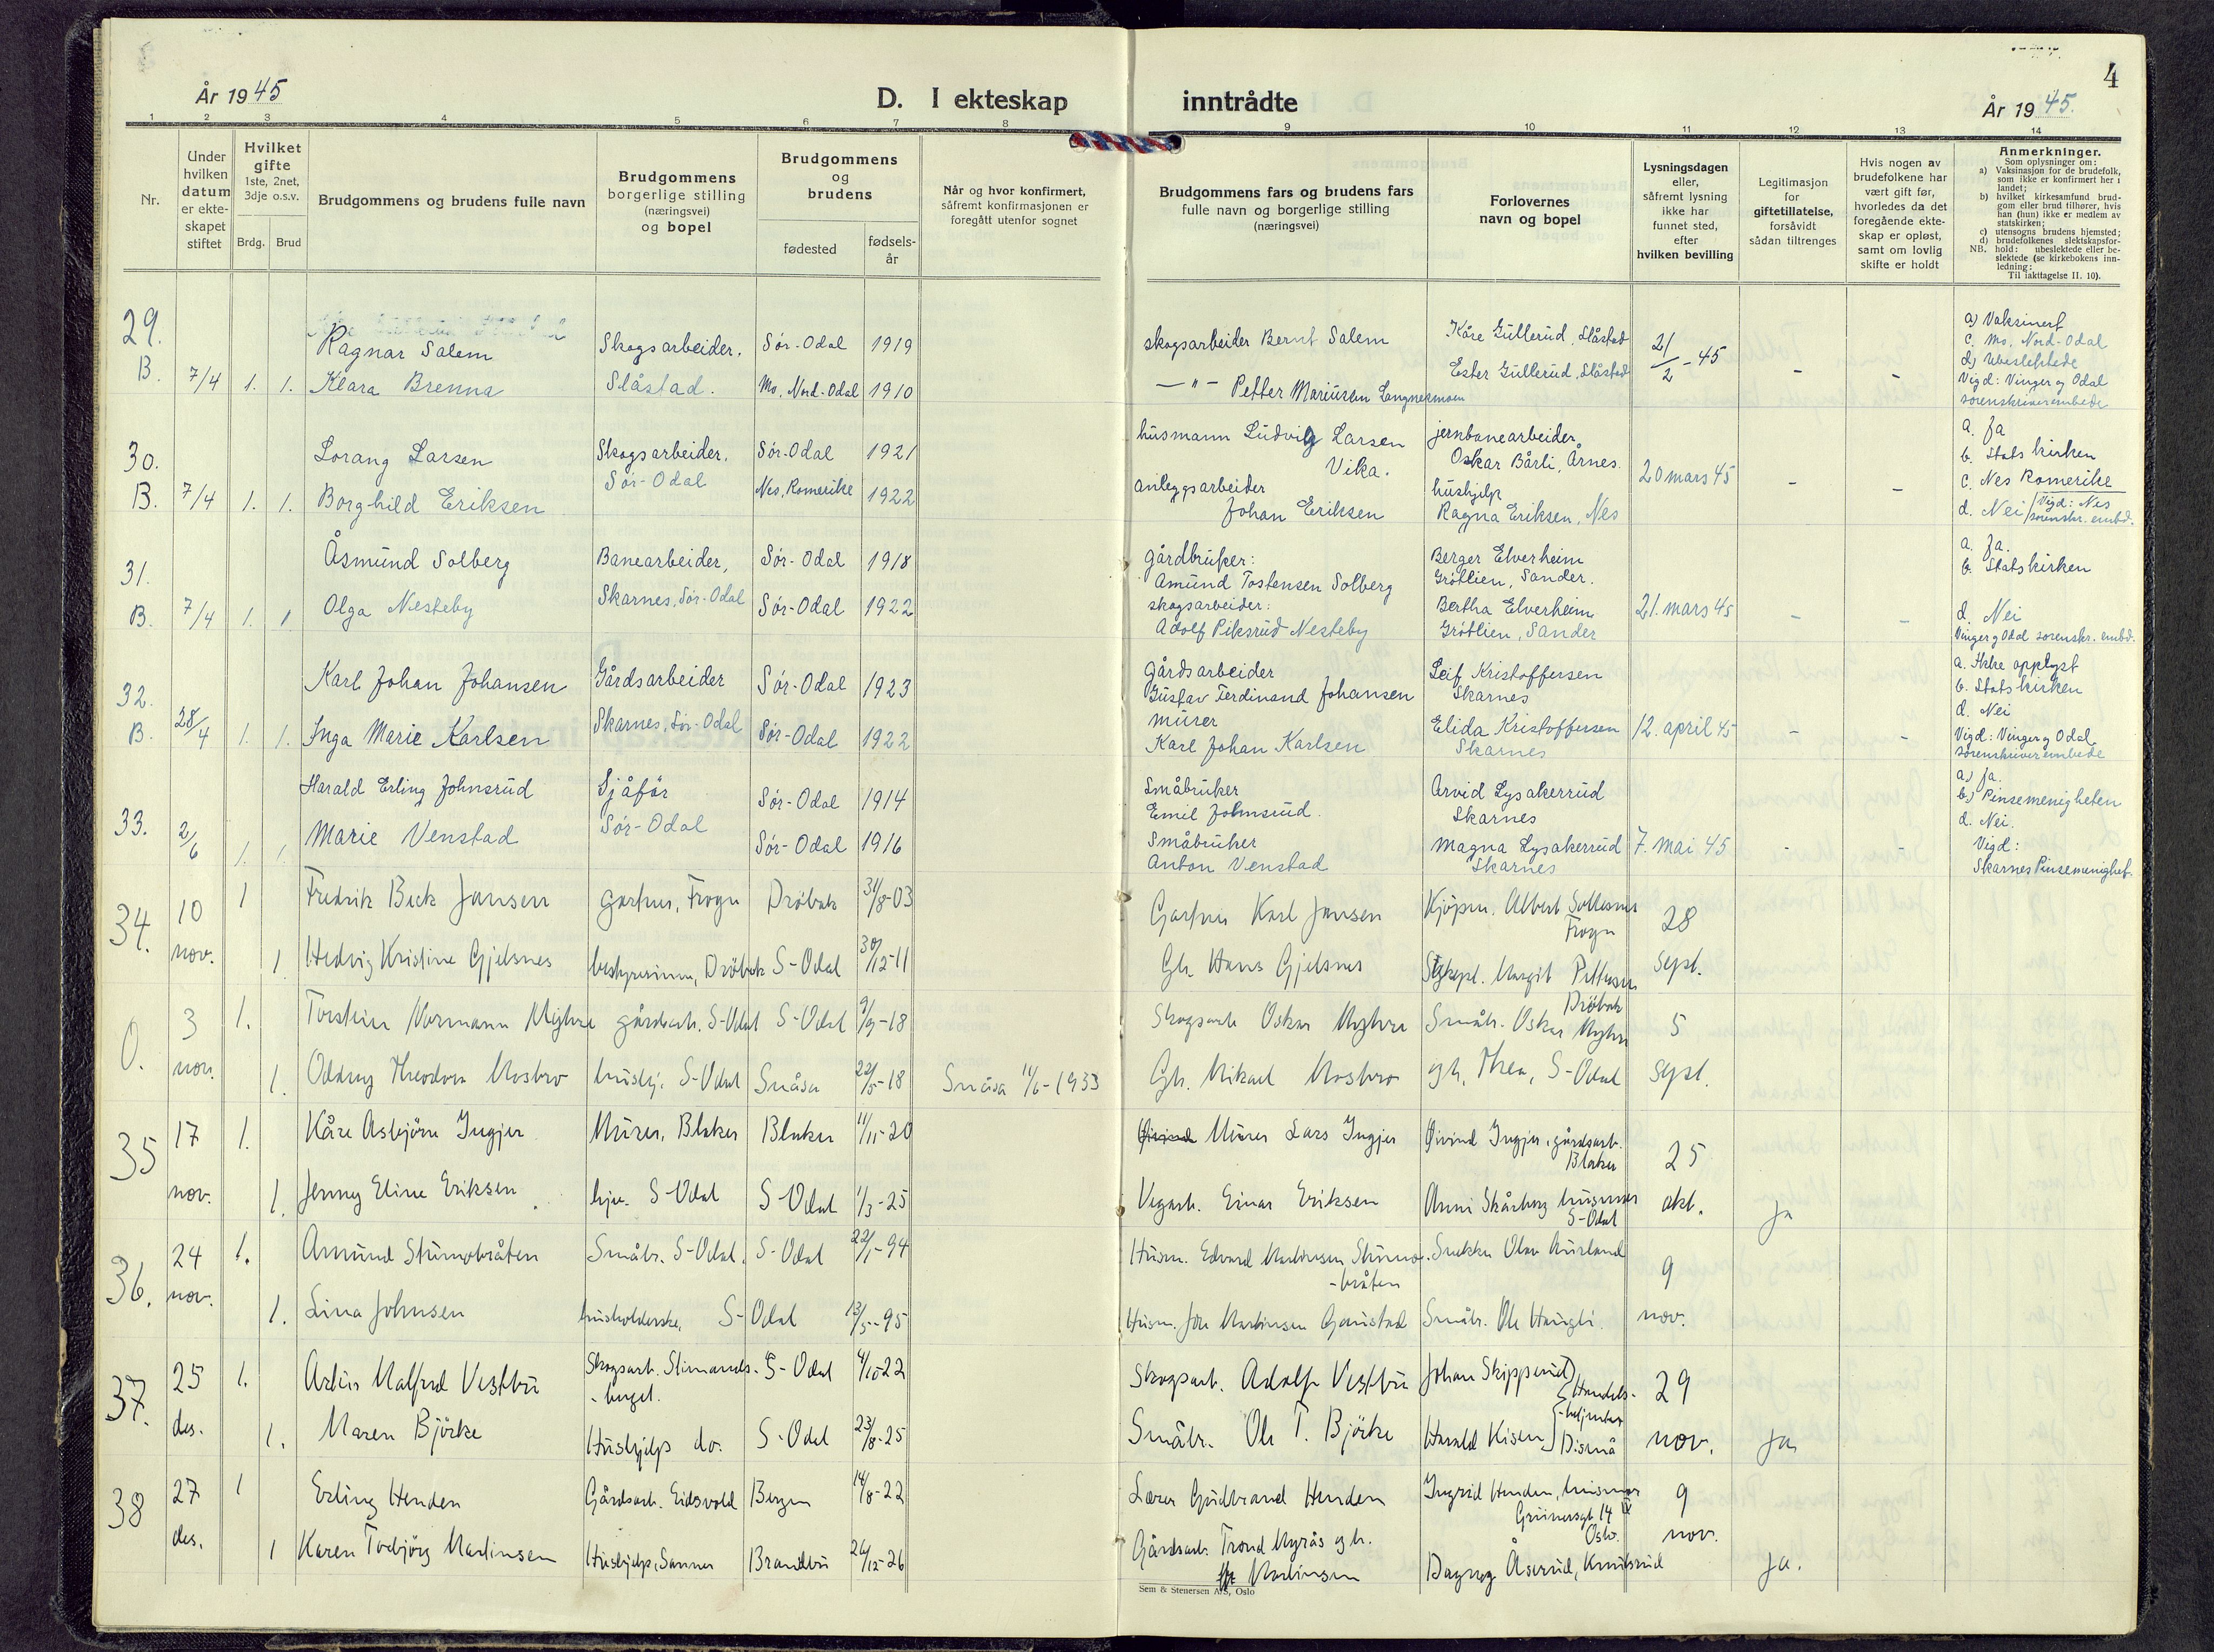 4
År 1945
D. I ekteskap inntrådte
År 1945.
1 2 3 4 5 6 7 8 9 10 11 12 13 14
Nr.
Under hvilken datum er ekteskapet stiftet
Hvilket gifte 1ste, 2net, 3dje o.s.v.
Brdg. Brud
Brudgommens og brudens fulle navn
Brudgommens borgerlige stilling (næringsvei) og bopel
Brudgommens og brudens
fødested
fødselsår
Når og hvor konfirmert, såfremt konfirmasjonen er foregått utenfor sognet
Brudgommens fars og brudens fars fulle navn og borgerlige stilling (næringsvei)
Forlovernes navn og bopel
Lysningsdagen eller, såfremt lysning ikke har funnet sted, efter hvilken bevilling
Legitimasjon for giftetillatelse, forsåvidt sådan tiltrenges
Hvis nogen av brudefolkene har vært gift før, hvorledes da det foregående ekteskap er opløst, samt om lovlig skifte er holdt
Anmerkninger.
Som oplysninger om:
a) Vaksinasjon for de brudefolk, som ikke er konfirmert her i landet;
b) hvilket kirkesamfund brudgom eller brud tilhører, hvis han (hun) ikke er medlem av statskirken;
c) utensogns brudens hjemsted;
d) brudefolkenes slektskapsforhold: ubeslektede eller beslektede (se kirkebokens innledning:
NB.
Til iakttagelse II. 10).
29. B. 7/4 1. 1.
Ragnar Salem Skogsarbeider, Sør-Odal 1919 skogsarbeider Bernt Salem Kåre Gullerud, Slåstad 21/2-45
Klara Brenna Slåstad. Mo, Nord-Odal 1910 — " — Petter Mariusen Langnesmoen Ester Gullerud, Slåstad - -
a) Vaksinert
c. Mo, Nord-Odal
d) Ubeslektede
Vigd: Vinger og Odal
sorenskriverembede
30. B. 7/4 1. 1.
Lorang Larsen Skogsarbeider, Sør-Odal 1921 husmann Ludvig Larsen Vika. jernbanearbeider, Oskar Bårli, Årnes. 20 mars 45
Borghild Eriksen Sør-Odal Nes, Romerike 1922 anleggsarbeider Johan Eriksen hushjelp Ragna Eriksen, Nes - -
a. Ja
b. Statskirken
c. Nes Romerike
d. Nei / Vigd: Nes sorenskr. embd.
31. B. 7/4 1. 1
Åsmund Solberg Banearbeider, Sør-Odal 1918 gårdbruker: Amund Tostensen Solberg Berger Elverheim Grötlien, Sander.
Olga Nesteby Skarnes, Sør-Odal Sør-Odal 1922 skogsarbeider: Adolf Piksrud Nesteby Bertha Elverheim Grötlien, Sander 21. mars 45 - -
a. Ja.
b. Statskirken
d. Nei
Vinger og Odal sorenskr. embd.
32. B. 28/4 1. 1.
Karl Johan Johansen Gårdsarbeider Sør-Odal 1923 gårdsarbeider Gustav Ferdinand Johansen Leif Kristoffersen Skarnes
Inga Marie Karlsen Skarnes, Sør-Odal Sør-Odal 1922 murer Karl Johan Karlsen Elida Kristoffersen Skarnes 12. april 45 - -
a. Ikke opplyst
b. Statskirken
d. Nei
Vigd: Vinger og Odal
sorenskriverembede
33. 2/6 1. 1.
Harald Erling Johnsrud Sjåför Sør-Odal 1914 Småbruker Emil Johnsrud. Arvid Lysakerrud Skarnes
Marie Venstad Sør-Odal Sør-Odal 1916 Småbruker Anton Venstad Magna Lysakerrud Skarnes 7. mai 45 - -
a.) ja.
b.) Pinsemenigheten
d. Nei.
Vigd:
Skarnes Pinsemenighet.
34. 10 nov. 1 1.
Fredrik Beck Jansen gartner, Frogn Dröbak 31/8-03 Gartner Karl Jansen Kjöpm. Albert Frogn 28
Hedvig Kristine Gjelsnes bestyrerinne, Dröbak S-Odal 30/12-11 Gb. Hans Gjelsnes Margit Pettersen Dröbak sept.
0. 3 nov. 1. 1.
Torstein Normann Myhre gårdsarb. S-Odal S-Odal 9/9-18 Skogsarb Oskar Myhre Småbr. Oskar Myhre 5
Oddny Theodora Mosbro hushj. S-Odal Snåsa 22/5-18 Snåsa 11/6-1933 Gb. Mikael Mosbro og h. Thea, S-Odal sept.
35 17 nov. 1. 1.
Kåre Asbjörn Ingjer Murer, Blaker Blaker 11/11-20 Øivind Murer Lars Ingjer Øivind Ingjer, gårdsarb. Blaker 25
Jenny Eline Eriksen hjv. S-Odal S-Odal 1/3-25 Vegarb. Einar Eriksen Anni Skårberg husmor S-Odal okt. ja
36. 24 nov. 1. 1.
Amund Stumobråten Småbr. S-Odal. S-Odal 22/1-94 Husm. Edvard Martinsen Stumo-bråten Snekker Olav Aurland 9
Lina Johnsen husholderske, S-Odal 13/5-95 Husm. Jon Martinsen Gaustad Småbr. Ole Haugli. nov.
37. 25 des. 1. 1.
Malfred Vestbu Skogsarb. Slimands-berget. S-Odal 4/10-22 Skogsarb. Adolf Vestbu Johan Skipperud 29
Maren Björke Hushjelp do. S-Odal 23/8-25 Småbr. Ole T. Björke Harald Kisen Handels-betjenter Disenå nov. ja
38 27 des. 1 1
Erling Henden Gårdsarb. Eidsvold Bergen 14/8-22 Lærer Gudbrand Henden Ingrid Henden, husmor Grünersgt 14 Oslo. 9
Karen Torbjörg Martinsen Hushjelp, Sanner Brandbu 26/12-26 Gårdsarb. Trond Myrås og h. Martinsen Dagny Åserud, Knutsrud nov. ja.
Sem & Stenersen A/S, Oslo